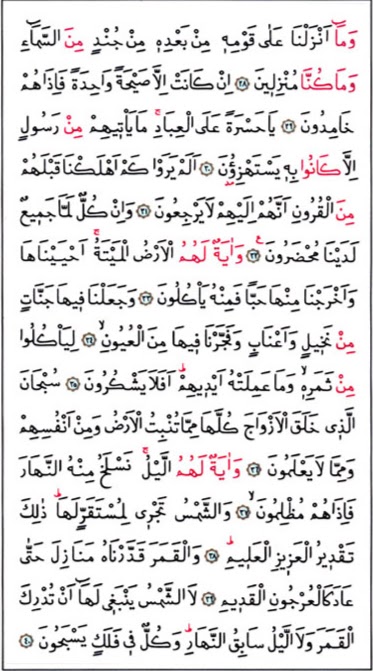 وَمَٓا اَنْزَلْنَا عَلٰى قَوْمِه۪ مِنْ بَعْدِه۪ مِنْ جُنْدٍ مِنَ السَّمَٓاءِ
وَمَا كُنَّا مُنْزِل۪ينَ ﴿٢٨﴾ اِنْ كَانَتْ اِلَّا صَيْحَةً وَاحِدَةً فَاِذَا هُمْ
خَامِدُونَ ﴿٢٩﴾ يَا حَسْرَةً عَلَى الْعِبَادِۚ مَا يَأْت۪يهِمْ مِنْ رَسُولٍ
اِلَّا كَانُوا بِه۪ يَسْتَهْزِؤُ۫نَ ﴿٣٠﴾ اَلَمْ يَرَوْا كَمْ اَهْلَكْنَا قَبْلَهُمْ
مِنَ الْقُرُونِ اَنَّهُمْ اِلَيْهِمْ لَا يَرْجِعُونَ ﴿٣١﴾ وَاِنْ كُلٌّ لَمَّا جَم۪يعٌ
لَدَيْنَا مُحْضَرُونَ۟ ﴿٣٢﴾ وَاٰيَةٌ لَهُمُ الْاَرْضُ الْمَيْتَةُۚ اَحْيَيْنَاهَا
وَاَخْرَجْنَا مِنْهَا حَبًّا فَمِنْهُ يَأْكُلُونَ ﴿٣٣﴾ وَجَعَلْنَا ف۪يهَا جَنَّاتٍ
مِنْ نَخ۪يلٍ وَاَعْنَابٍ وَفَجَّرْنَا ف۪يهَا مِنَ الْعُيُونِۙ ﴿٣٤﴾ لِيَأْكُلُوا
مِنْ ثَمَرِه۪ۙ وَمَا عَمِلَتْهُ اَيْد۪يهِمْۜ اَفَلَا يَشْكُرُونَ ﴿٣٥﴾ سُبْحَانَ
الَّذ۪ي خَلَقَ الْاَزْوَاجَ كُلَّهَا مِمَّا تُنْبِتُ الْاَرْضُ وَمِنْ اَنْفُسِهِمْ
وَمِمَّا لَا يَعْلَمُونَ ﴿٣٦﴾ وَاٰيَةٌ لَهُمُ الَّيْلُۚ نَسْلَخُ مِنْهُ النَّهَارَ
فَاِذَا هُمْ مُظْلِمُونَۙ ﴿٣٧﴾ وَالشَّمْسُ تَجْر۪ي لِمُسْتَقَرٍّ لَهَاۜ ذٰلِكَ
تَقْد۪يرُ الْعَز۪يزِ الْعَل۪يمِۜ ﴿٣٨﴾ وَالْقَمَرَ قَدَّرْنَاهُ مَنَازِلَ حَتّٰى
عَادَ كَالْعُرْجُونِ الْقَد۪يمِ ﴿٣٩﴾ لَا الشَّمْسُ يَنْبَغ۪ي لَهَٓا اَنْ تُدْرِكَ
الْقَمَرَ وَلَا الَّيْلُ سَابِقُ النَّهَارِۜ وَكُلٌّ ف۪ي فَلَكٍ يَسْبَحُونَ ﴿٤٠﴾